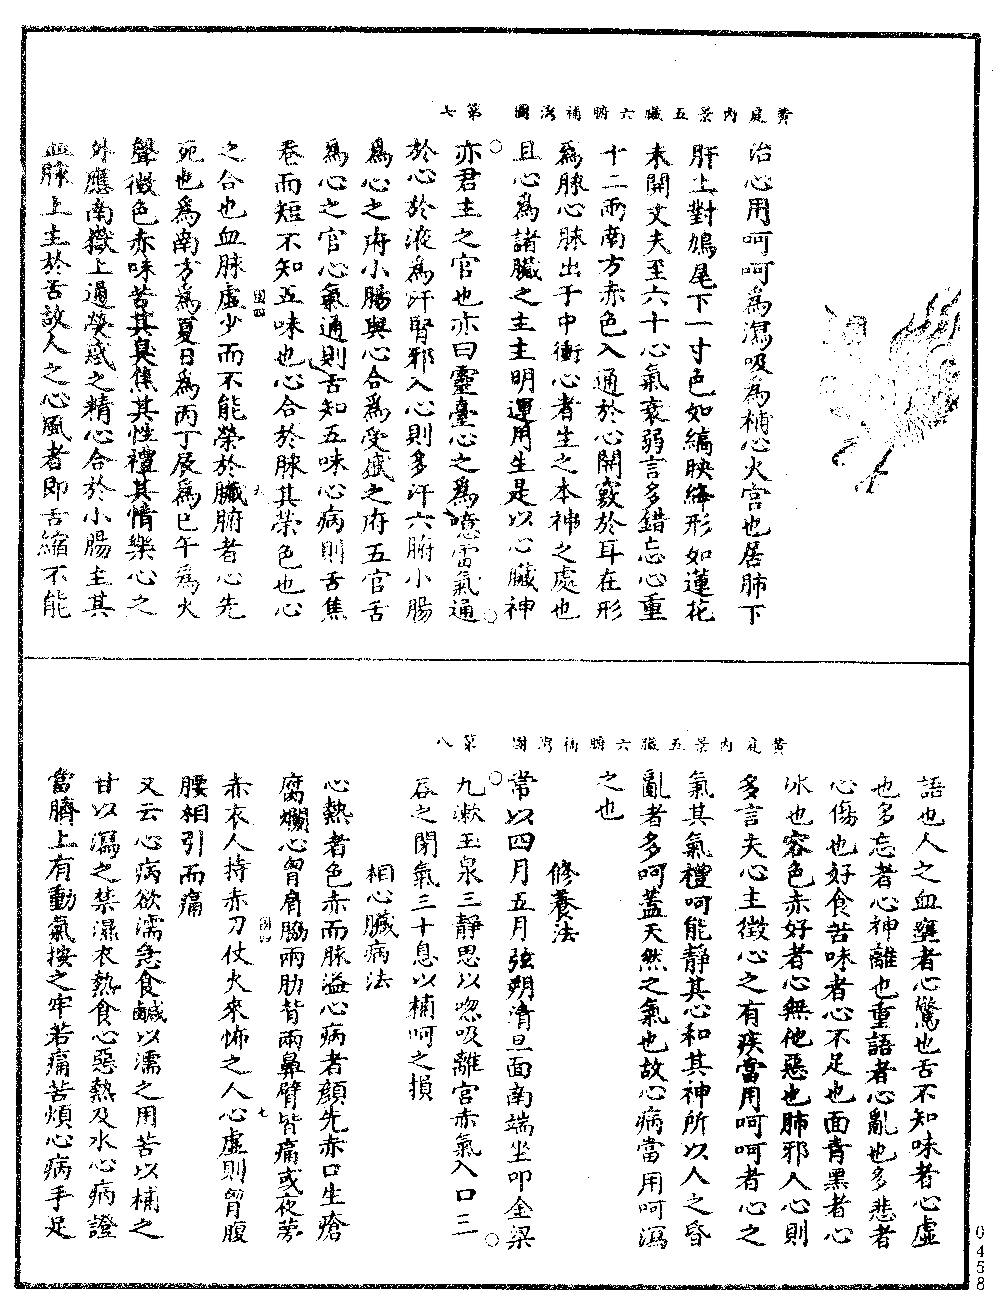 黃庭內景五臟六腑補瀉圖　第七
治心用呵呵為瀉吸為補心火宮也居肺下
肝上對鳩尾下一寸色如縞映絳形如蓮花
未開丈夫至六十心氣衰弱言多錯忘心重
十二兩南方赤色入通於心開竅於耳在形
為脉心脉出于中衝心者生之本神之處也
且心為諸臟之主主明運用生是以心臟神
亦君主之官也亦曰靈臺心之為噫雷氣通
於心於液為汗腎邪入心則多汗六腑小腸
為心之府小腸與心合為受盛之府五官舌
為心之官心氣通則舌知五味心病則舌焦
卷而短不知五味也心合於脉其榮色也心
之合也血脉虛少而不能榮於臟腑者心先
死也為南方為夏日為丙丁辰為巳午為火
聲徵色赤味苦其臭焦其性禮其情樂心之
外應南嶽上通熒惑之精心合於小腸主其
血脉上主於舌故人之心風者即舌縮不能
黃庭內景五臟六腑補瀉圖　第八
語也人之血壅者心驚也舌不知味者心虛
也多忘者心神離也重語者心亂也多悲者
心傷也好食苦味者心不足也面青黑者心
冰也容色赤好者心無他惡也肺邪入心則
多言夫心主徵心之有疾當用呵呵者心之
氣其氣禮呵能靜其心和其神所以人之昏
亂者多呵蓋天然之氣也故心病當用呵瀉
之也
修養法
常以四月五月弦朔清旦面南端坐叩金梁
九漱玉泉三靜思以吻吸離宮赤氣入口三
吞之閉氣三十息以補呵之損
相心臟病法
心熱者色赤而脉溢心病者顏先赤口生瘡
腐爛心胷肩脇兩肋背兩鼻臂皆痛或夜夢
赤衣人持赤刀仗火來怖之人心虛則胷腹
腰相引而痛
又云心病欲濡急食鹹以濡之用苦以補之
甘以瀉之禁濕衣熱食心惡熱及水心病證
當臍上有動氣按之牢若痛苦煩心病手足
0458